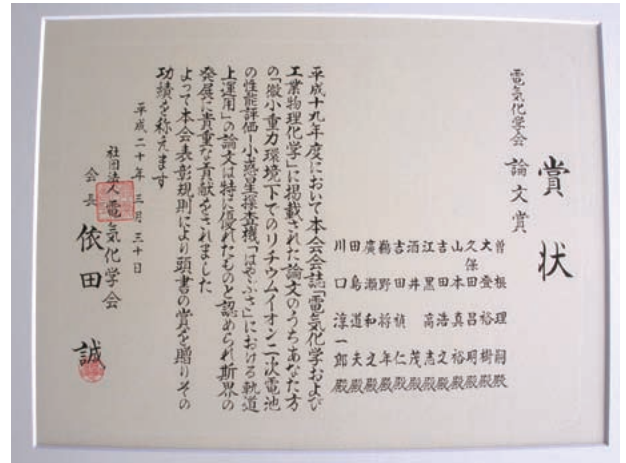 賞状
電気化学会 論文賞
曽根理嗣殿
大登裕樹殿
久保田昌明殿
山本真裕殿
吉田浩之殿
江黒高志殿
酒井茂殿
吉田禎仁殿
鵜野将年殿
廣瀬和之殿
田島道夫殿
川口淳一郎殿
平成十九年度において本会会誌「電気化学および
工業物理化学」に掲載された論文のうちあなた方
の「微小重力環境下でのリチウムイオン二次電池
の性能評価-小惑星探査機「はやぶさ」における軌道
上運用」の論文は特に優れたものと認められ斯界の
発展に貴重な貢献をされました
よって本会表彰規則により頭書の賞を贈りその
功績を称えます
平成二十年三月三十日
社団法人 電気化学会
会長 依田 誠